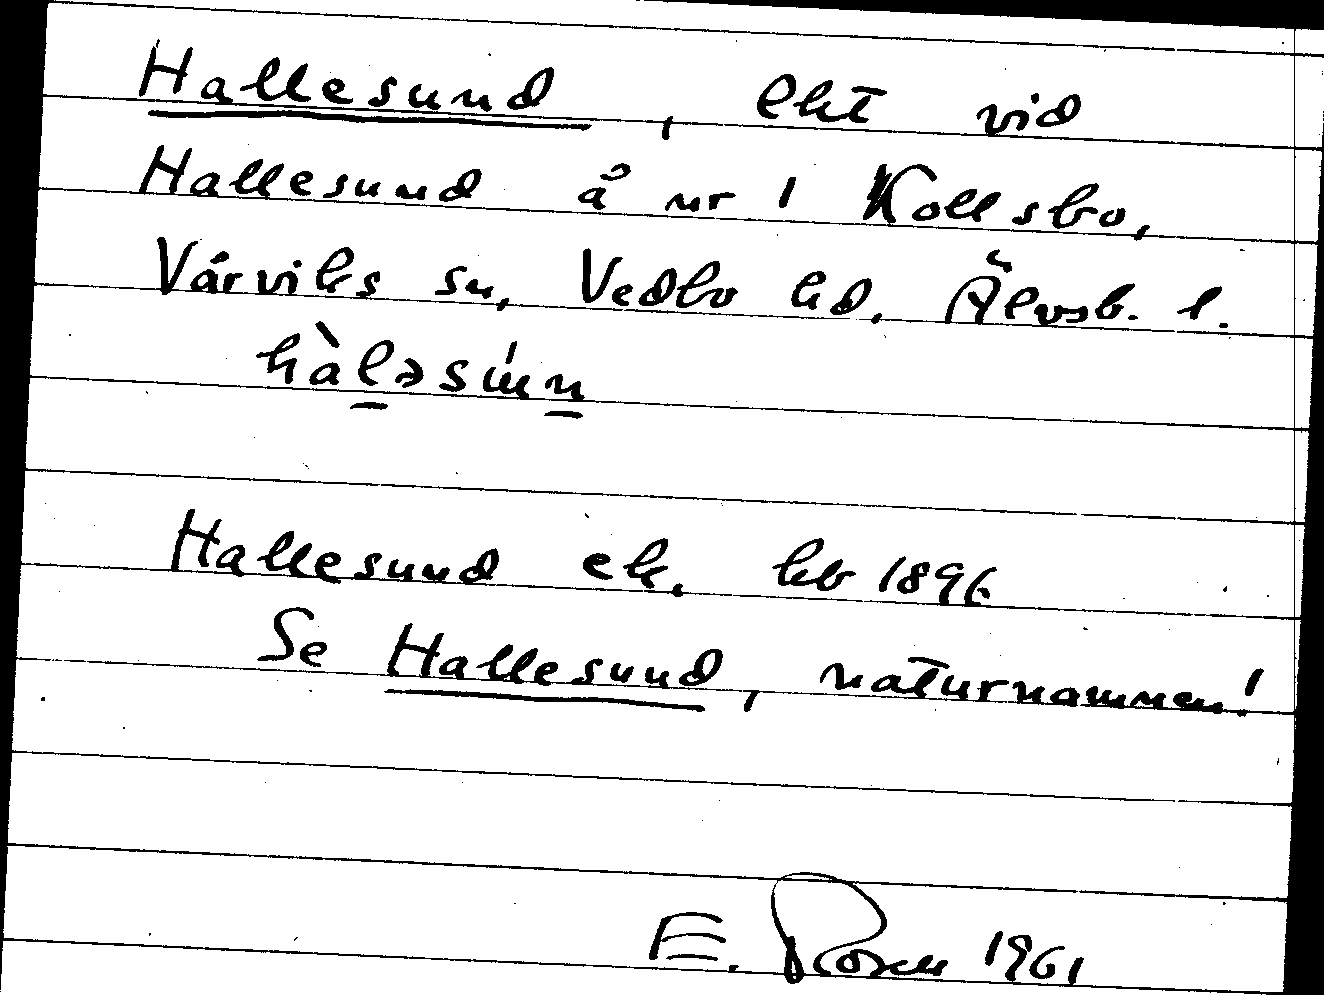 Hallesund, lht vid
Hallesund å nr 1 Kollsbo,
Vårviks sn, Vedbo hd, Älvsb. l.
hàləsúnn
Hallesund lh. hb 1896
Se Hallesund, naturnamnen!
E. Rosen 1961